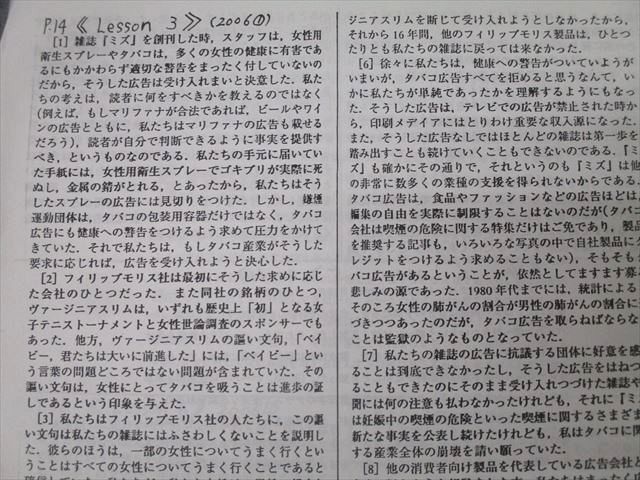 P.14 《 Lesson 3 》 (2006①)
[1] 雑誌『ミズ』を創刊した時，スタッフは，女性用
衛生スプレーやタバコは，多くの女性の健康に有害であ
るにもかかわらず適切な警告をまったく付していないの
だから，そうした広告は受け入れまいと決意した．私た
ちの考えは，読者に何をすべきかを教えるのではなく
(例えば，もしマリファナが合法であれば，ビールやワイ
ンの広告とともに，私たちはマリファナの広告も載せる
だろう)，読者が自分で判断できるように事実を提供す
べき，というものなのである．私たちの手元に届いてい
た手紙には，女性用衛生スプレーでゴキブリが実際に死
ぬし，金属の錆がとれる，とあったから，私たちはそう
したスプレーの広告には見切りをつけた．しかし，嫌煙
運動団体は，タバコの包装用容器だけではなく，タバコ
広告にも健康への警告をつけるよう求めて圧力をかけて
きていた．それで私たちは，もしタバコ産業がそうした
要求に応じれば，広告を受け入れようと決心した．
[2] フィリップモリス社は最初にそうした求めに応じ
た会社のひとつだった．また同社の銘柄のひとつ，
ヴァージニアスリムは，いずれも歴史上「初」となる女
子テニストーナメントと女性世論調査のスポンサーでも
あった．他方，ヴァージニアスリムの謳い文句，「ベイ
ビー，君たちは大いに前進した」には，「ベイビー」とい
う言葉の問題どころではない問題が含まれていた．その
謳い文句は，女性にとってタバコを吸うことは進歩の証
しであるという印象を与えた．
[3] 私たちはフィリップモリス社の人たちに，この謳
い文句は私たちの雑誌にはふさわしくないことを説明し
た．彼らのほうは，一部の女性についてうまく行くとい
うことはすべての女性についてうまく行くことであると
ジニアスリムを断じて受け入れようとしなかったから，
それから16年間，他のフィリップモリス製品は，ひとつ
たりとも私たちの雑誌に戻っては来なかった．
[6] 徐々に私たちは，健康への警告がついていようが
いまいが，タバコ広告すべてを拒めると思うなんて，い
かに私たちが単純であったかを理解するようにもなっ
た．そうした広告は，テレビでの広告が禁止された時か
ら，印刷メデイアにはとりわけ重要な収入源になった．
また，そうした広告なしではほとんどの雑誌は第一歩を
踏み出すことも続けていくこともできないのである．『ミ
ズ』も確かにその通りで，それというのも『ミズ』は他
の非常に数多くの業種の支援を得られないからである．
タバコ広告は，食品やファッションなどの広告ほどは，
編集の自由を実際に制限することはないのだが(タバコ
会社は喫煙の危険に関する特集だけはご免であり，製品
を推奨する記事も，いろいろな写真の中で自社製品にク
レジットをつけるよう求めることもない)，そもそも
バコ広告があるということが，依然としてますます募
悲しみの源であった．1980年代までには，統計による
そのころ女性の肺がんの割合が男性の肺がんの割合に
づきつつあったのだが，タバコ広告を取らねばならな
ことは監獄のようなものとなっていた．
[7] 私たちの雑誌の広告に抗議する団体に好意を感
ることは到底できなかったし，そうした広告をはねつ
ることもできたのにそのまま受け入れつづけた雑誌
聞には何の注意も払わなかったけれども，それに『ミ
は妊娠中の喫煙の危険といった喫煙に関するさまざま
新たな事実を公表し続けたけれども，私はタバコに関
する産業全体の崩壊を請い願っていた．
[8] 他の消費者向け製品を代表している広告会社と